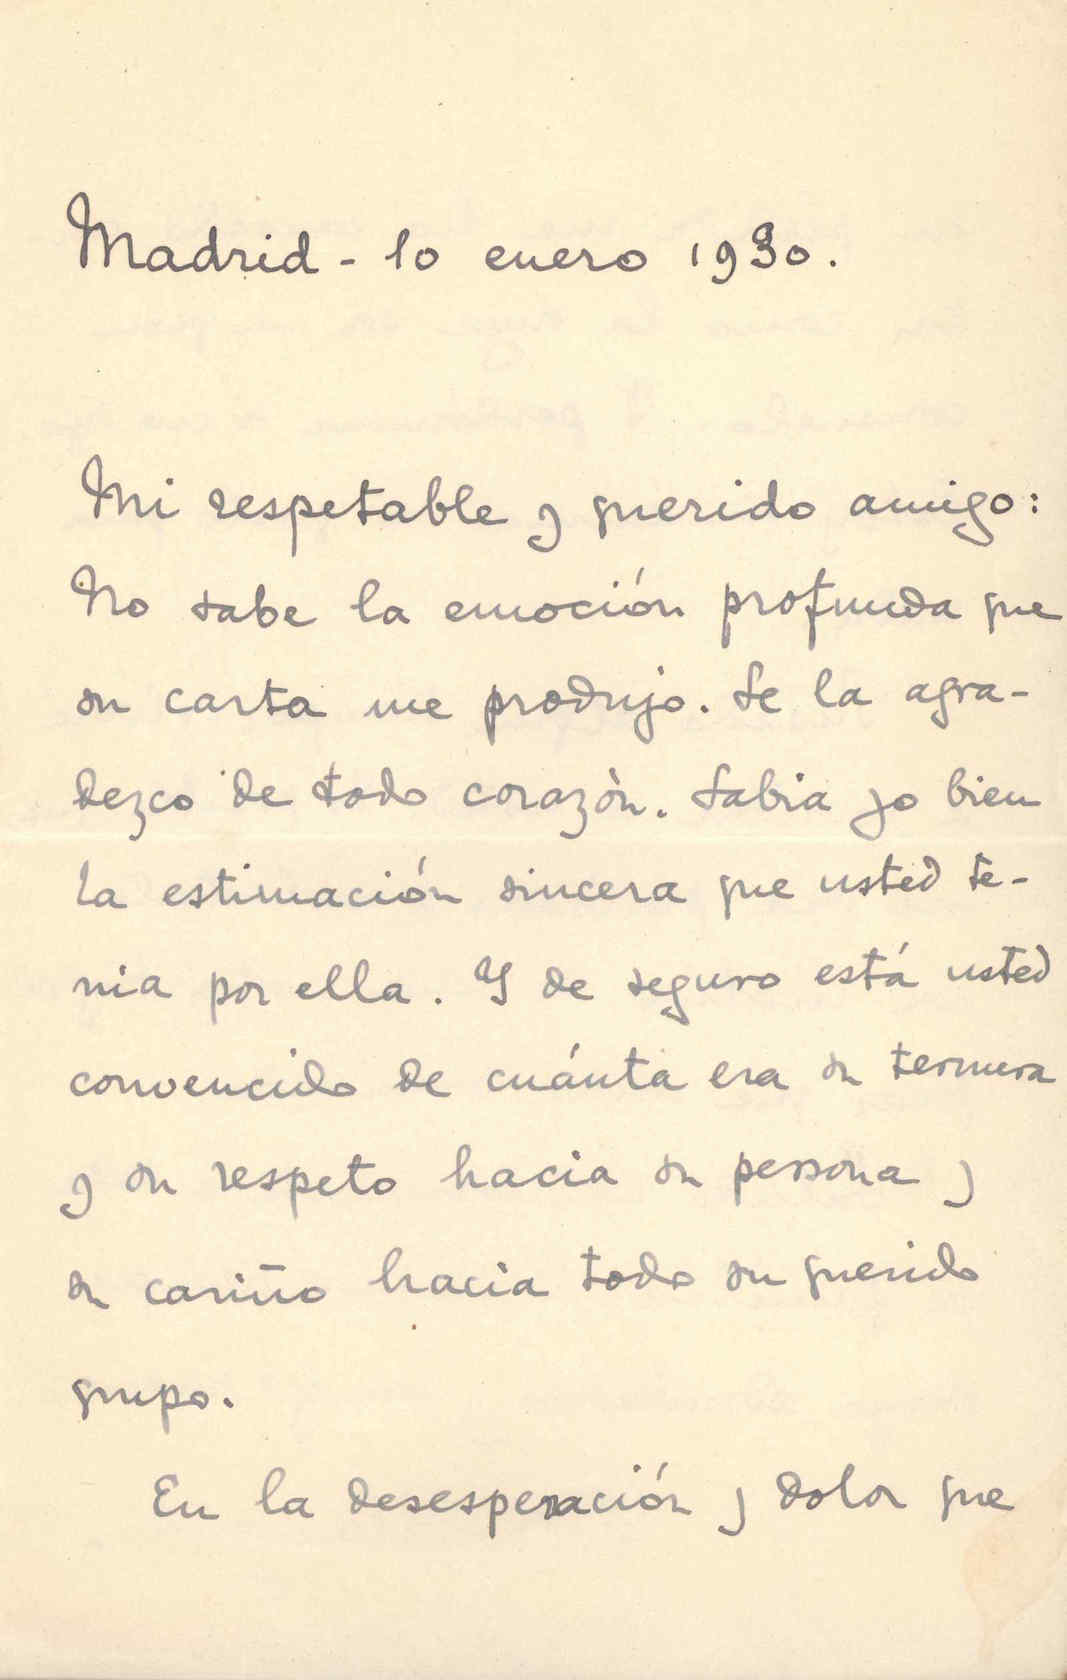 Madrid - 10 enero 1930.
Mi respetable y querido amigo:
No sabe la emoción profunda que
su carta me produjo. Se la agra-
dezco de todo corazón. Sabia yo bien
la estimación sincera que usted te-
nia por ella. Y de seguro está usted
convencido de cuánta era su ternura
y su respeto hacia su persona y
su cariño hacia todo su querido
grupo.
En la desesperación y dolor que